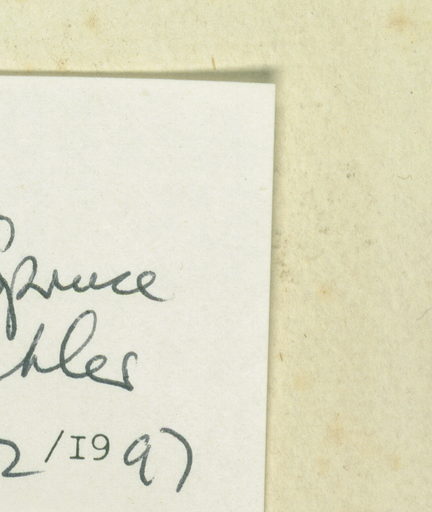 Spruce
hler
2/1997